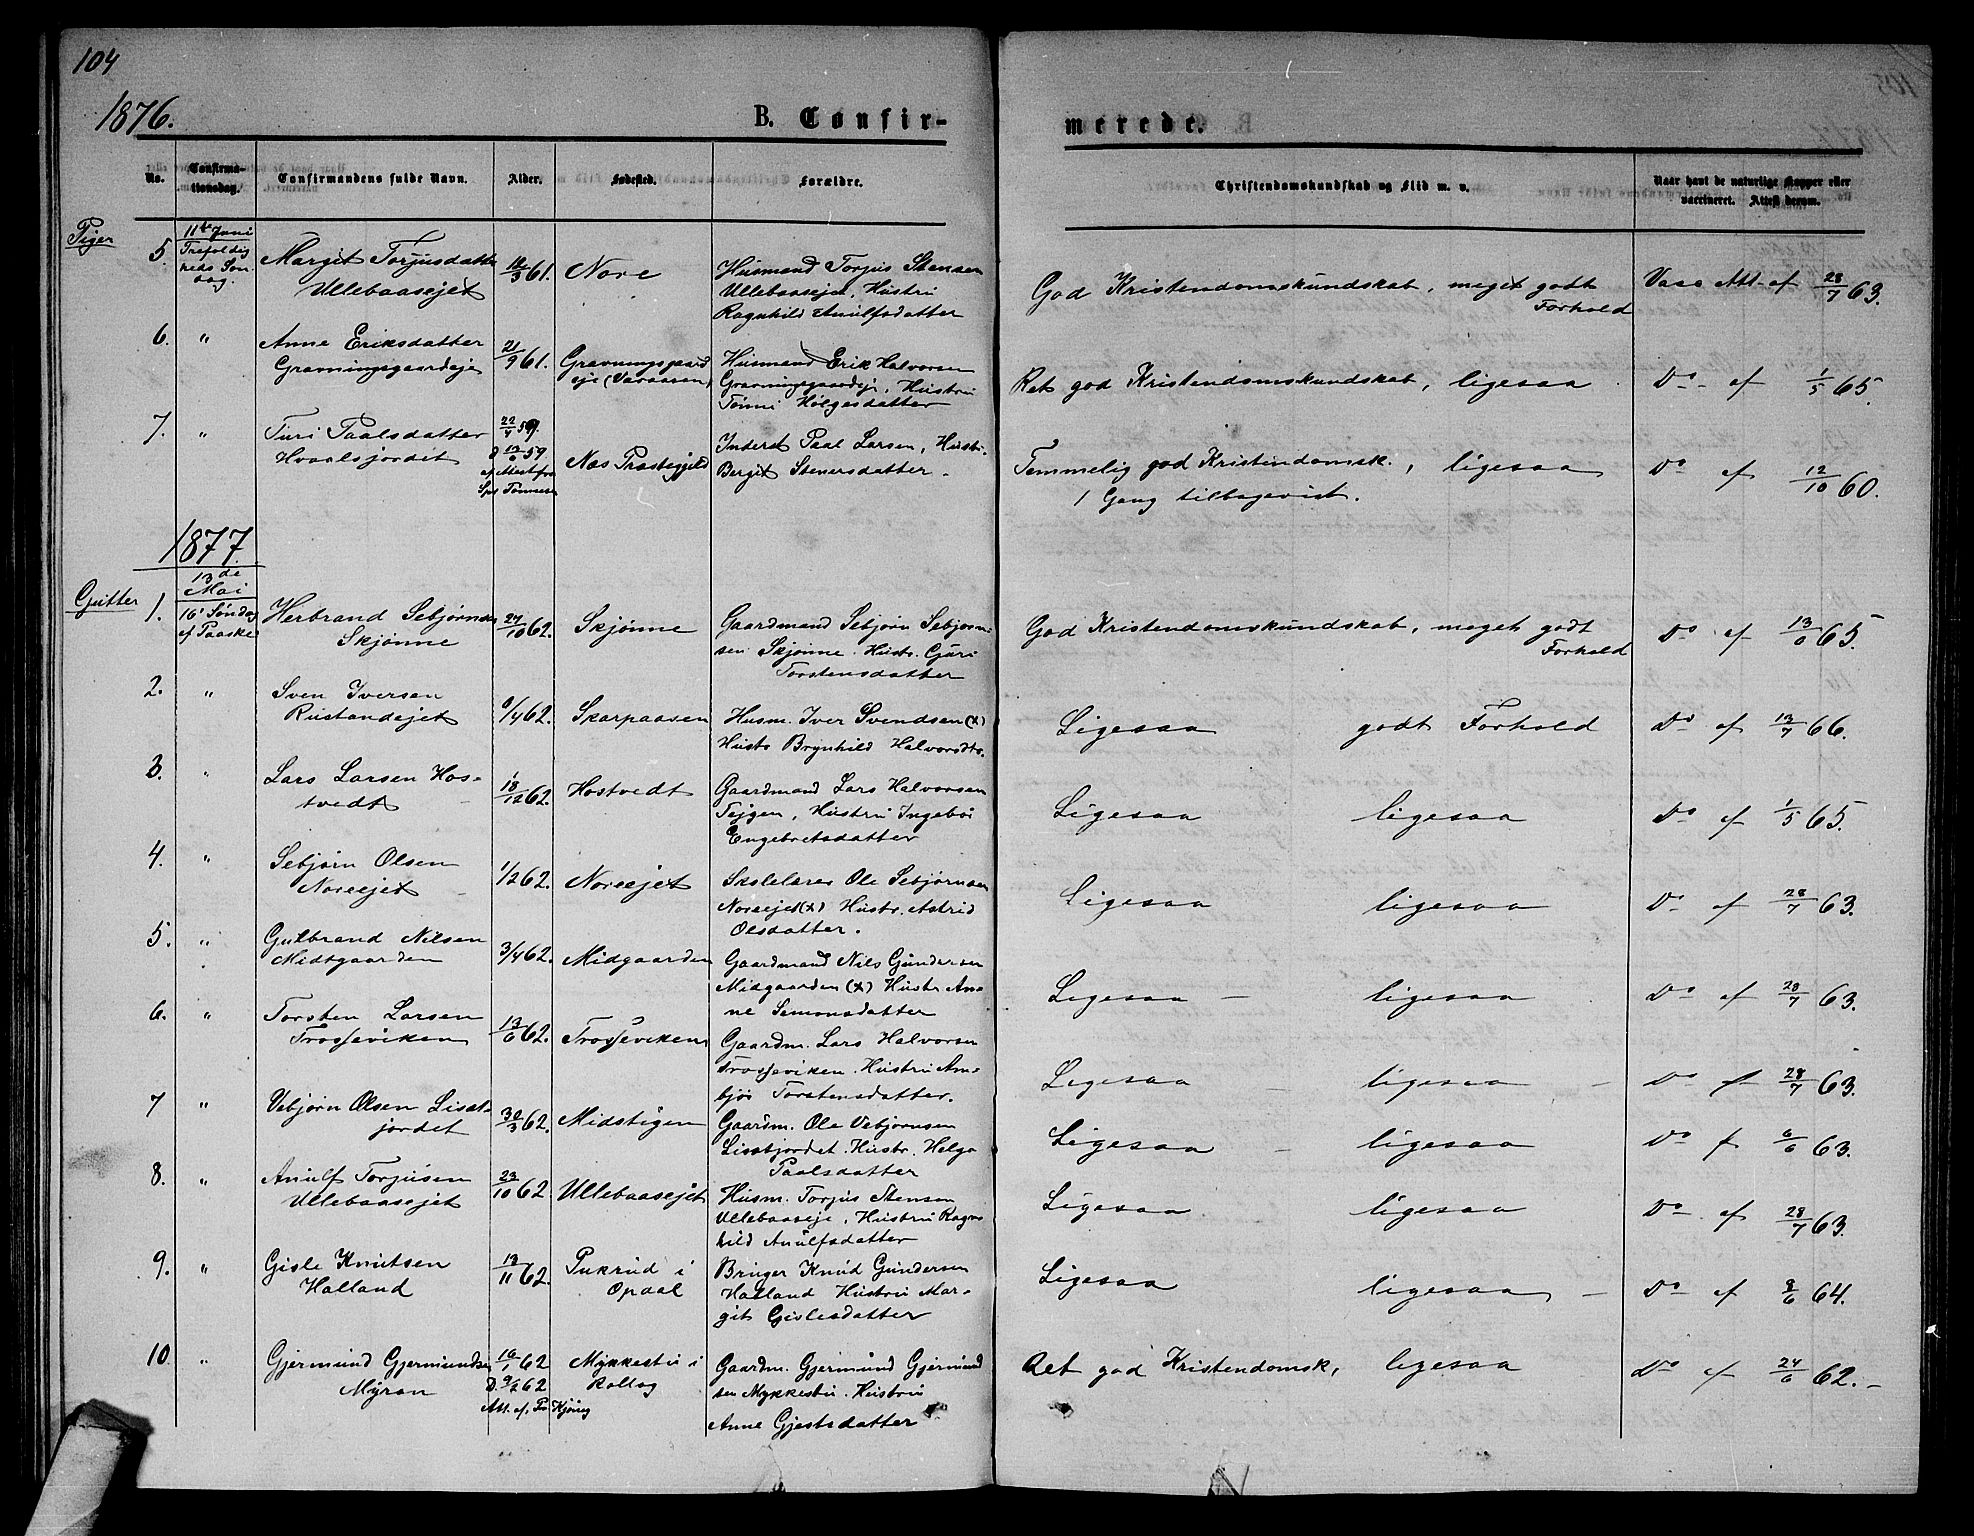 104
1876.
B. Confir-
merede.
No.
Confirma-
tionsdag.
Confirmandens fulde Navn.
Alder.
Fødested.
Forældre.
Christendomskundskab og Flid m. v.
Naar havt de naturlige Kopper eller
vaccineret. Attest derom.
Piger
5. 11te Juni
Trefoldig
heds Søn
dag.
Margit Torjusdatter
Ullebaasejet
12/3 61. Nore
Husmand Torjus Stensen
Ullebaaseje, Hustru
Ragnhild Anulfsdatter
God Kristendomskundskab, meget godt
Forhold
Vacc. Att. af 28/7 63.
6. " Anne Eriksdatter
Gravningsgaardeje
21/9 61. Gravningsgaard
eje (Varaasen)
Husmand Erik Halvorsen
Gravningsgaardeje, Hustru
Tønni Helgesdatter
Ret god Kristendomskundskab, ligesaa
Do af 1/5 65.
7. " Turi Paalsdatter
Hvaalsjordet
22/4 59.
D 12/6 59
af Attest fra
Spr Tønnesen
Næs Præstegjeld
Inderst Paal Larsen, Hustr.
Bergit Stenersdatter.
Temmelig god Kristendomsk., ligesaa
1 Gang tilbagevist.
Do af 12/10 60.
1877.
Gutter
1. 13de
Mai
16' Søndag
ef Paaske
Herbrand Sebjørnsen
Skjønne
24/10 62. Skjønne
Gaardmand Sebjørn Sebjørn-
sen Skjønne. Hustr. Guri
Torstensdatter
God Kristendomskundskab, meget godt
Forhold
Do af 13/6 65.
2. " Sven Iversen
Rustandejet
6/4 62. Skarpaasen
Husm. Iver Svendsen (x)
Hustr Brynhild Halvorsdtr.
Ligesaa godt Forhold
Do af 13/7 66.
3. " Lars Larsen Hos-
tvedt
18/12 62. Hostvedt
Gaardmand Lars Halvorsen
Tejgen, Hustru Ingebør
Engebretsdatter
Ligesaa ligesaa
Do af 1/5 65.
4. " Sebjørn Olsen
Noreejet
1/2 62. Noreejet
Skolelærer Ole Sebjørnsen
Noreejet (x) Hustr. Astrid
Olsdatter.
Ligesaa ligesaa
Do af 28/7 63.
5. " Gulbrand Nilsen
Midtgaarden
3/4 62. Midgaarden
Gaardmand Nils Gundersen
Midgaarden (x) Hustr An-
ne Semonsdatter
Ligesaa ligesaa
Do af 28/7 63.
6. " Torsten Larsen
Trosseviken
13/6 62. Trosseviken
Gaardm. Lars Halvorsen
Trosseviken. Hustru Am-
bjør Torstensdatter.
Ligesaa ligesaa
Do af 28/7 63.
7 " Vebjørn Olsen Lisset-
jordet
30/3 62. Midstigen
Gaardm. Ole Vebjørnsen
Lissetjordet. Hustr. Helga
Paalsdatter
Ligesaa ligesaa
Do f 6/6 63.
8. " Anulf Torjusen
Ullebaasejet
23/10 62 Ullebaasejet
Husm. Torjus Stensen
Ullebaaseje, Hustru Ragn-
hild Anulfsdatter
Ligesaa ligesaa
Do af 28/7 63.
9. " Gisle Knutsen
Halland
13/11 62. Pukrud i
Opdal
Bruger Knud Gundersen
Halland Hustru Mar-
git Gislesdatter
Ligesaa ligesaa
Do af 8/6 64.
10. " Gjermund Gjermundsen
Myran
16/1 62
D. 9/2 62
Att. af Pr Kjøng
Mykkestu i
Rollag
Gaardm. Gjermund Gjermund
sen Mykkestu. Hustru
Anne Gjestsdatter
Ret god Kristendomsk, ligesaa
Do af 24/6 62.